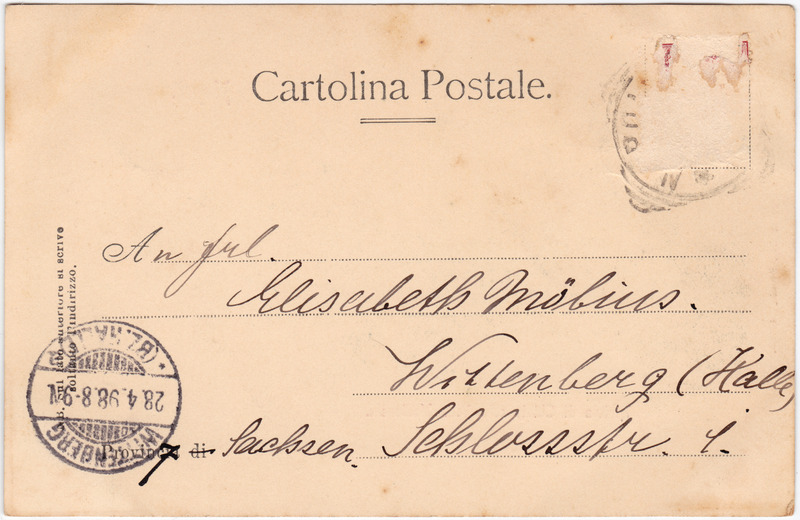 Cartolina Postale.
An Frl.
Elisabeth Möbius.
Wittenberg (Halle)
Provincia di Sachsen. Schlossstr. 1.
7
NB. Sul lato anteriore si scrive
soltanto l'indirizzo.
WITTENBERG
28.4.98.8-9N.
* (BZ. HALLE)